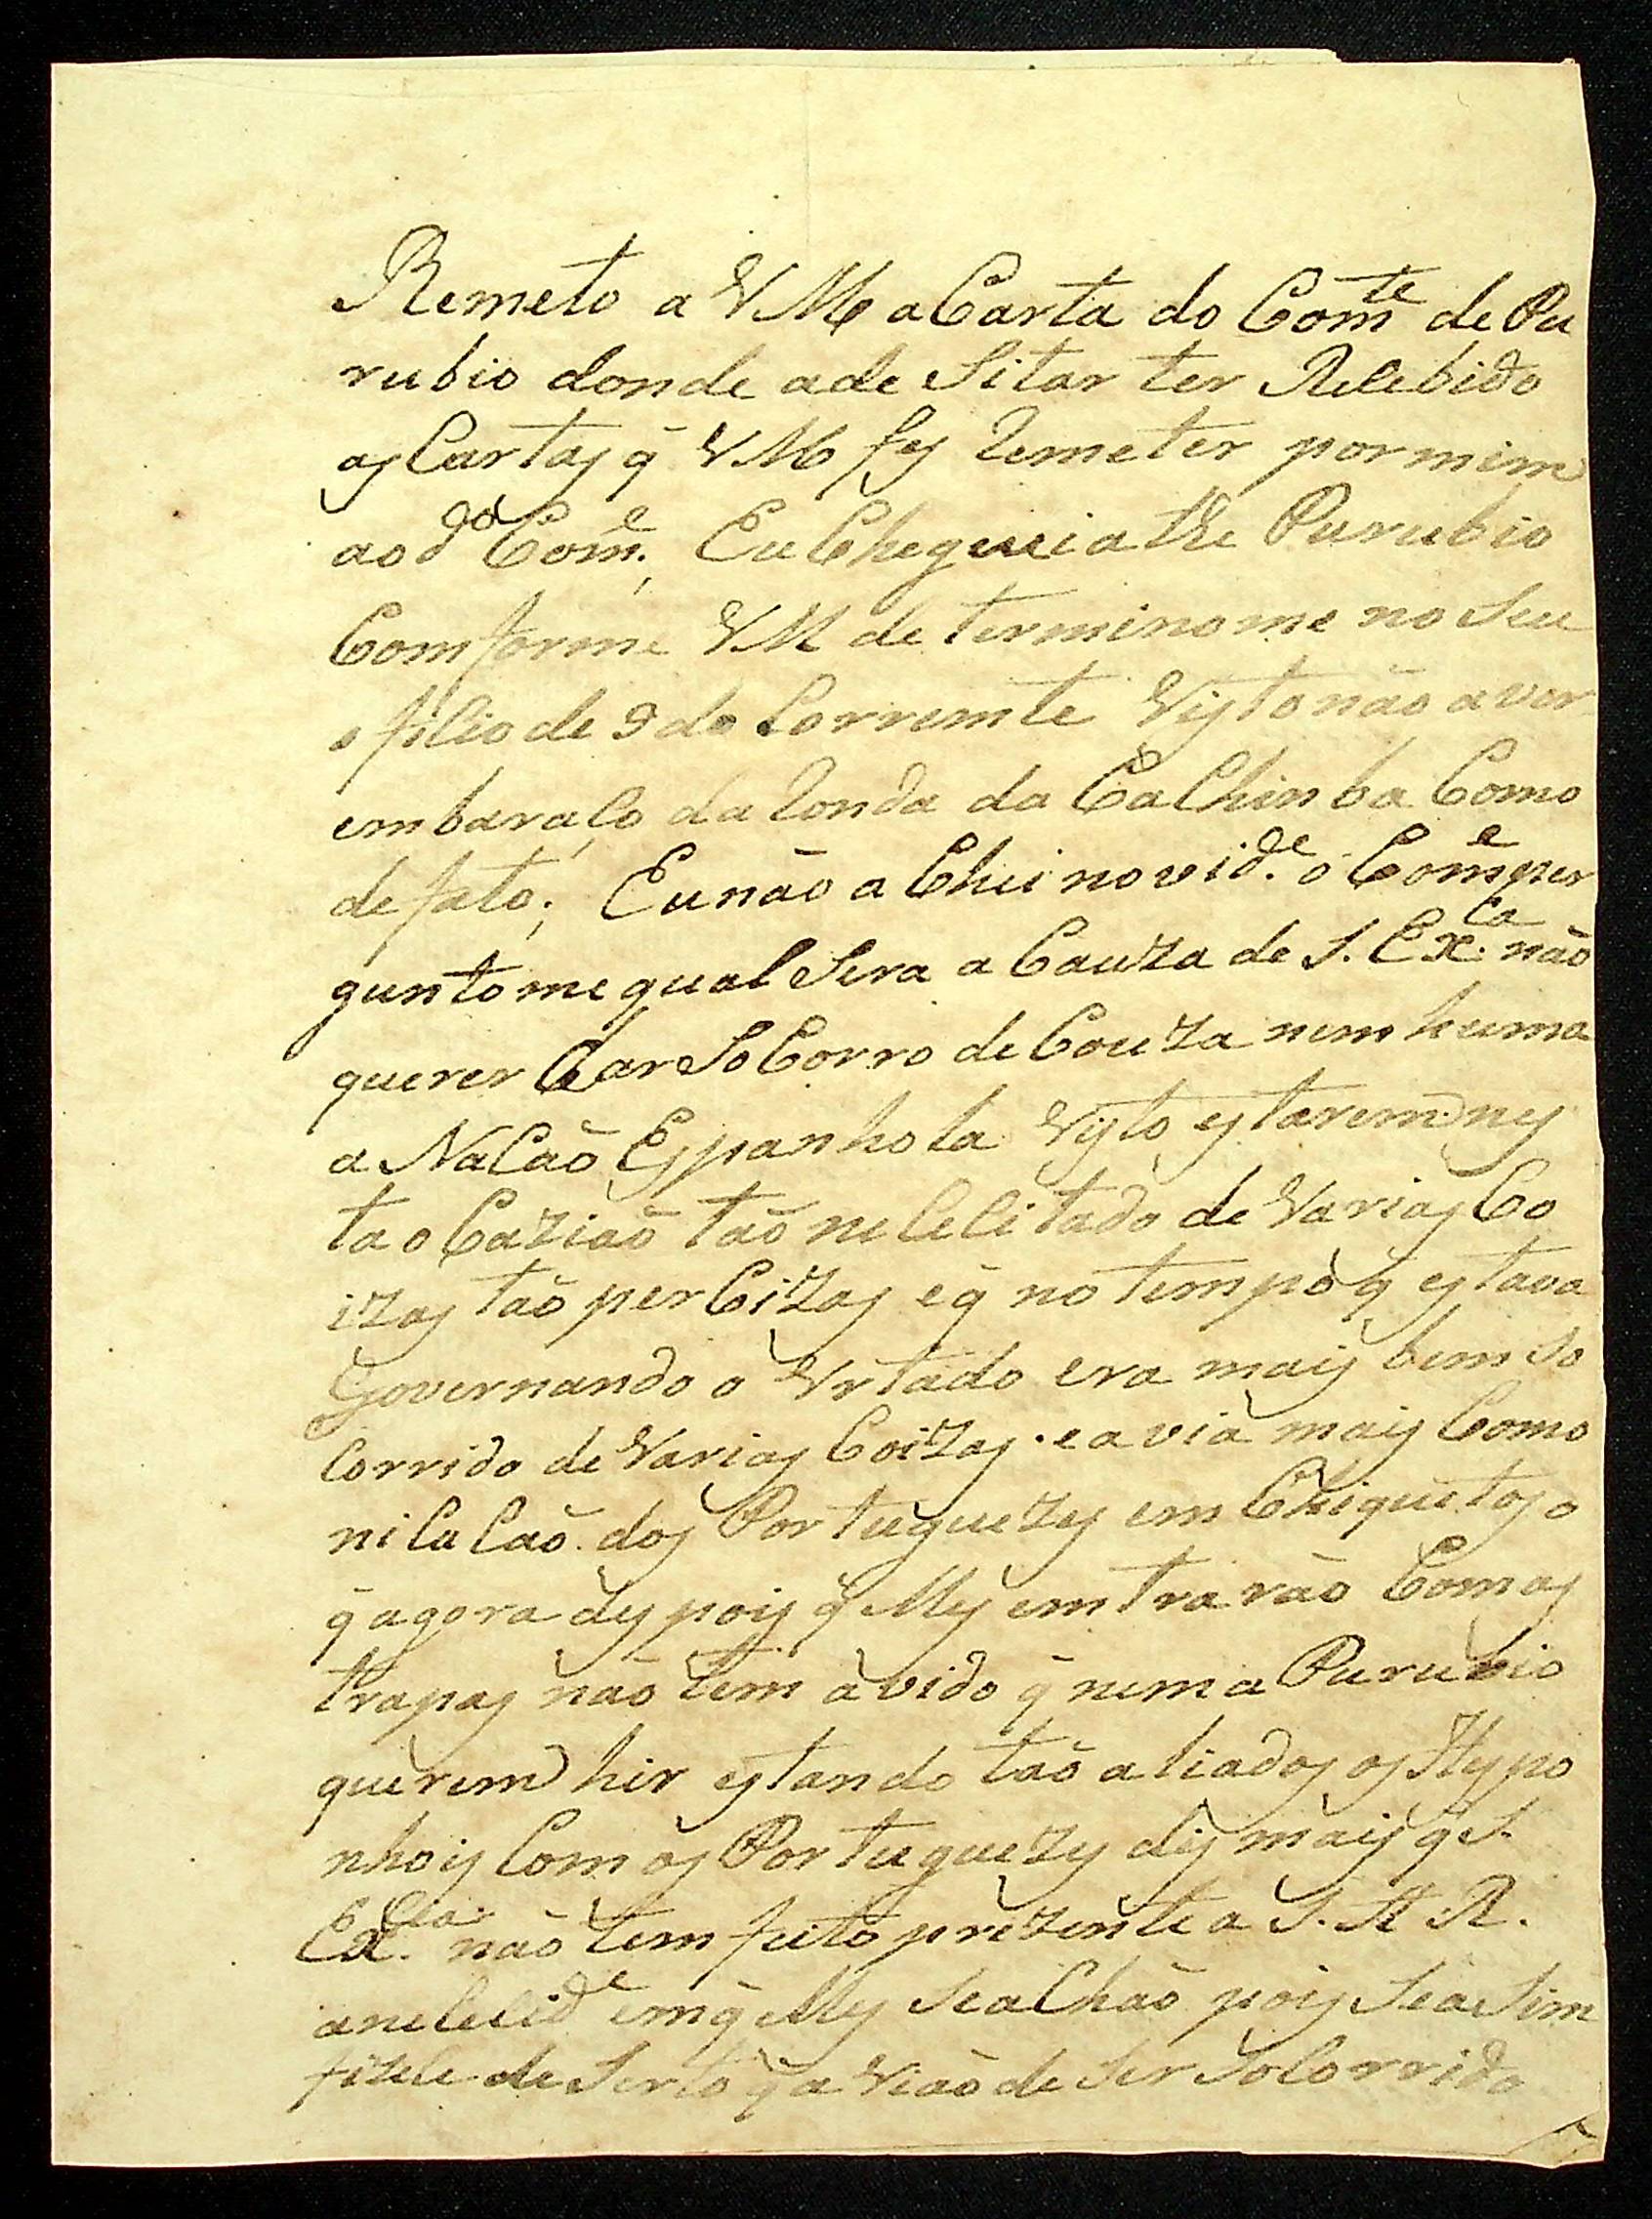 Remeto a VM a Carta do Com.te de Pu
rubio donde ade Sitar ter Recebido
as Cartas q̃ VM fes Remeter por mim
ao d.o Com.e; Eu Cheguei athe Purubio
Comforme VM determinome no Seu
oficio de 9 do Corremte Visto não aver
embaraço da Ronda da CaChinba Como
de fato; Eu não aChei novid.e o Com.e per
guntome qual Sera a Cauza de S. Ex.ca não
querer dar SoCorro de Couza nemhuma
a NaCão Espanhola Visto estarem nes
ta oCazião tão neCeCitado de Varias Co
izas tão perCizas e q̃ no tempo q̃ estava
Governando o Vrtado era mais bem So
Corrido de Varias Coizas e avia mais Como
niCaCão dos Portuguezes em Chiquitos o
q̃ agora despois q̃ Mes emtrarão Com as
trapas não tem avido q̃ nem a Purubio
querem hir estando tão aliados os Hespa
nhois Com os Portuguezes dis mais q̃ S.
Ex.cia não tem feito prezente a S. A R.
a neCeCid.e em q̃ Mes Se aChão pois Se aSim
fizeCe de Serto q̃ a Vião de Ser SoCorrido